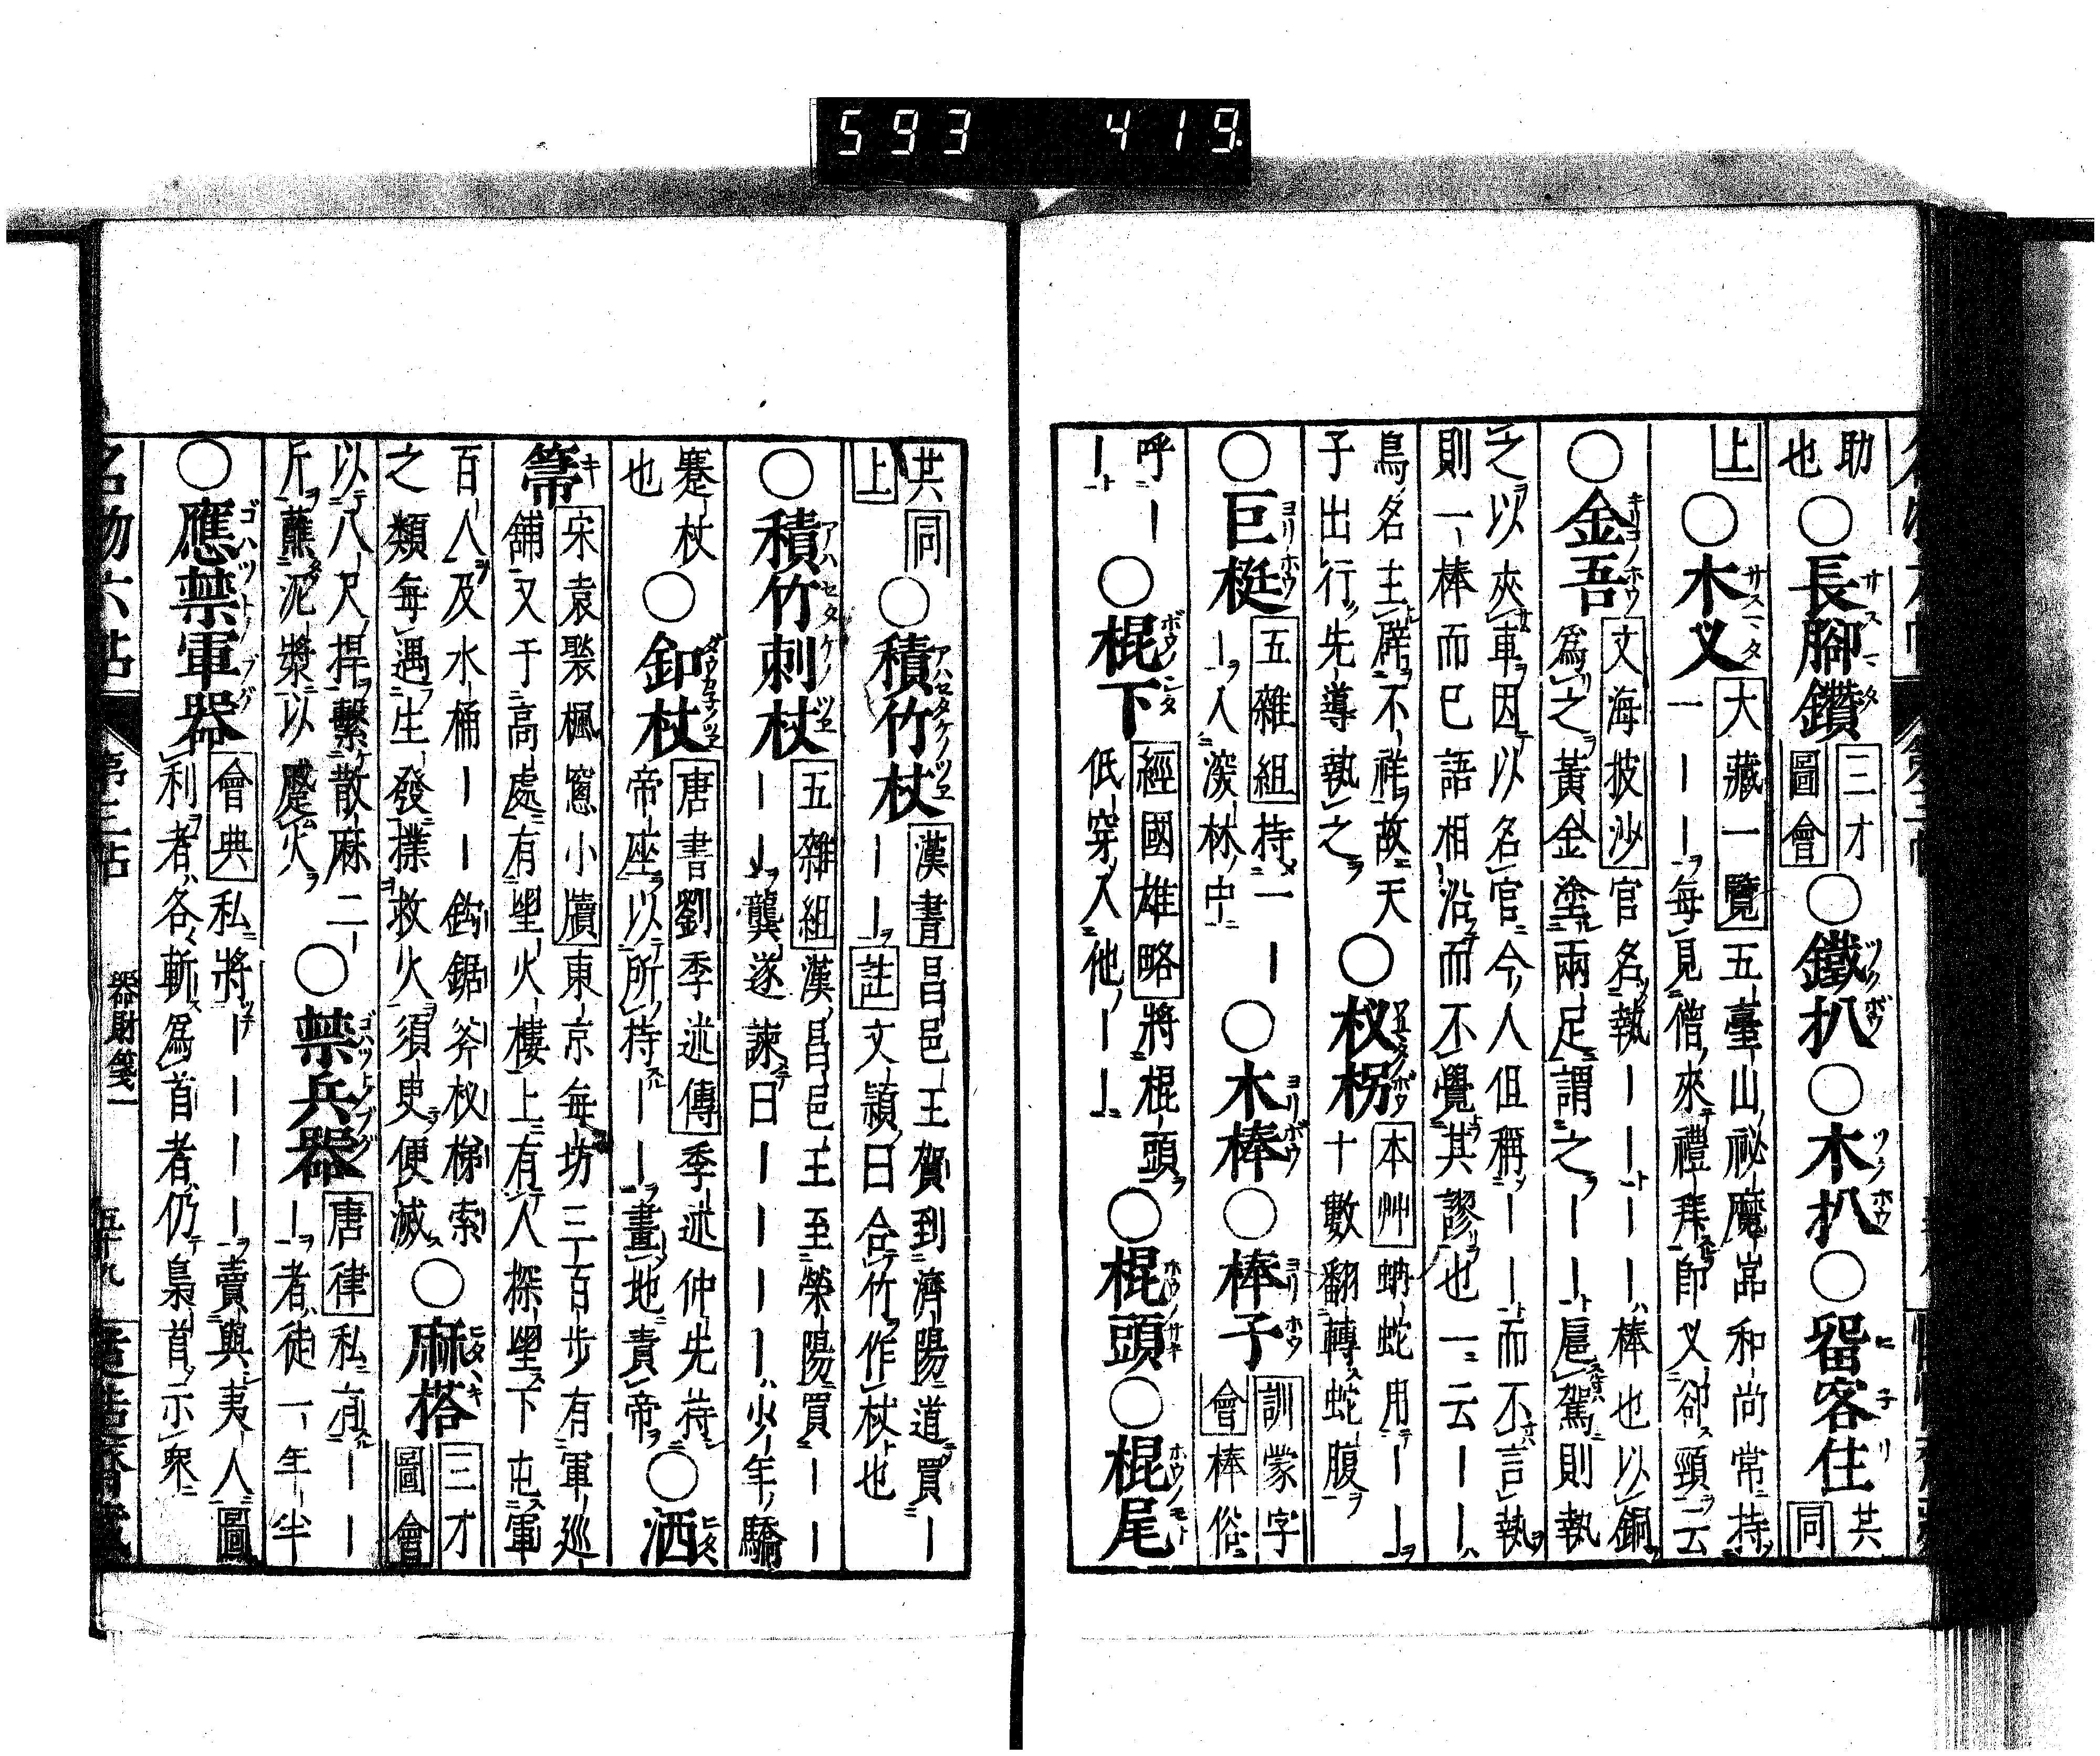 593 419.
助
也
○長腳鑽
三才
圖會
○鐵扒○木扒○留客住
共
同
上
○木叉
大藏一覽五臺山祕魔嵓和尚常持
一ーー每見僧來禮拜卽叉卻頸云
○金吾
文海披沙官名執ーーーー棒也以銅
爲之黃金塗兩足謂之ーー扈駕則執
之以夾車因以名官今人但稱ーー而不言執
則一棒而已語相沿而不覺其謬也一云ーー
鳥名主辟不祥故天
子出行先導執之
○杈枴
本艸蚺蛇用ーー
十數翻轉蛇腹
○巨梃
五雜組持一ー
ー入深林中
○木棒○棒子
訓蒙字
會棒俗
呼ー
ー
○棍下
經國雄略將棍頭
低穿入他ーー
○棍頭○棍尾
共同
上
○積竹杖
漢書昌邑王賀到濟陽道買ー
ーー註文穎曰合竹作杖也
○積竹刺杖
五雜組漢昌邑王至榮陽買ーー
ーー龔遂諫曰ーーーー少年驕
蹇杖
也
○釦杖
唐書劉季述傳季述仲先待
帝座以所持ーー畫地責帝
○洒
箒
宋袁褧楓窻小牘東京每坊三百步有軍巡
舖又于高處有塱火樓上有人探塱下屯軍
百人及水桶ーー鈎鋸斧杈梯索
之類每遇生發撲救火須臾便滅
○麻搭
三才
圖會
以八尺捍繫散麻二
斤蘸泥漿以蹙火
○禁兵器
唐律私有ーー
ー者徒一年半
○應禁軍器
會典私將ーーーー賣與夷人圖
利者各斬爲首者仍梟首示衆
名物六帖
第三帖
器財箋一
五十九